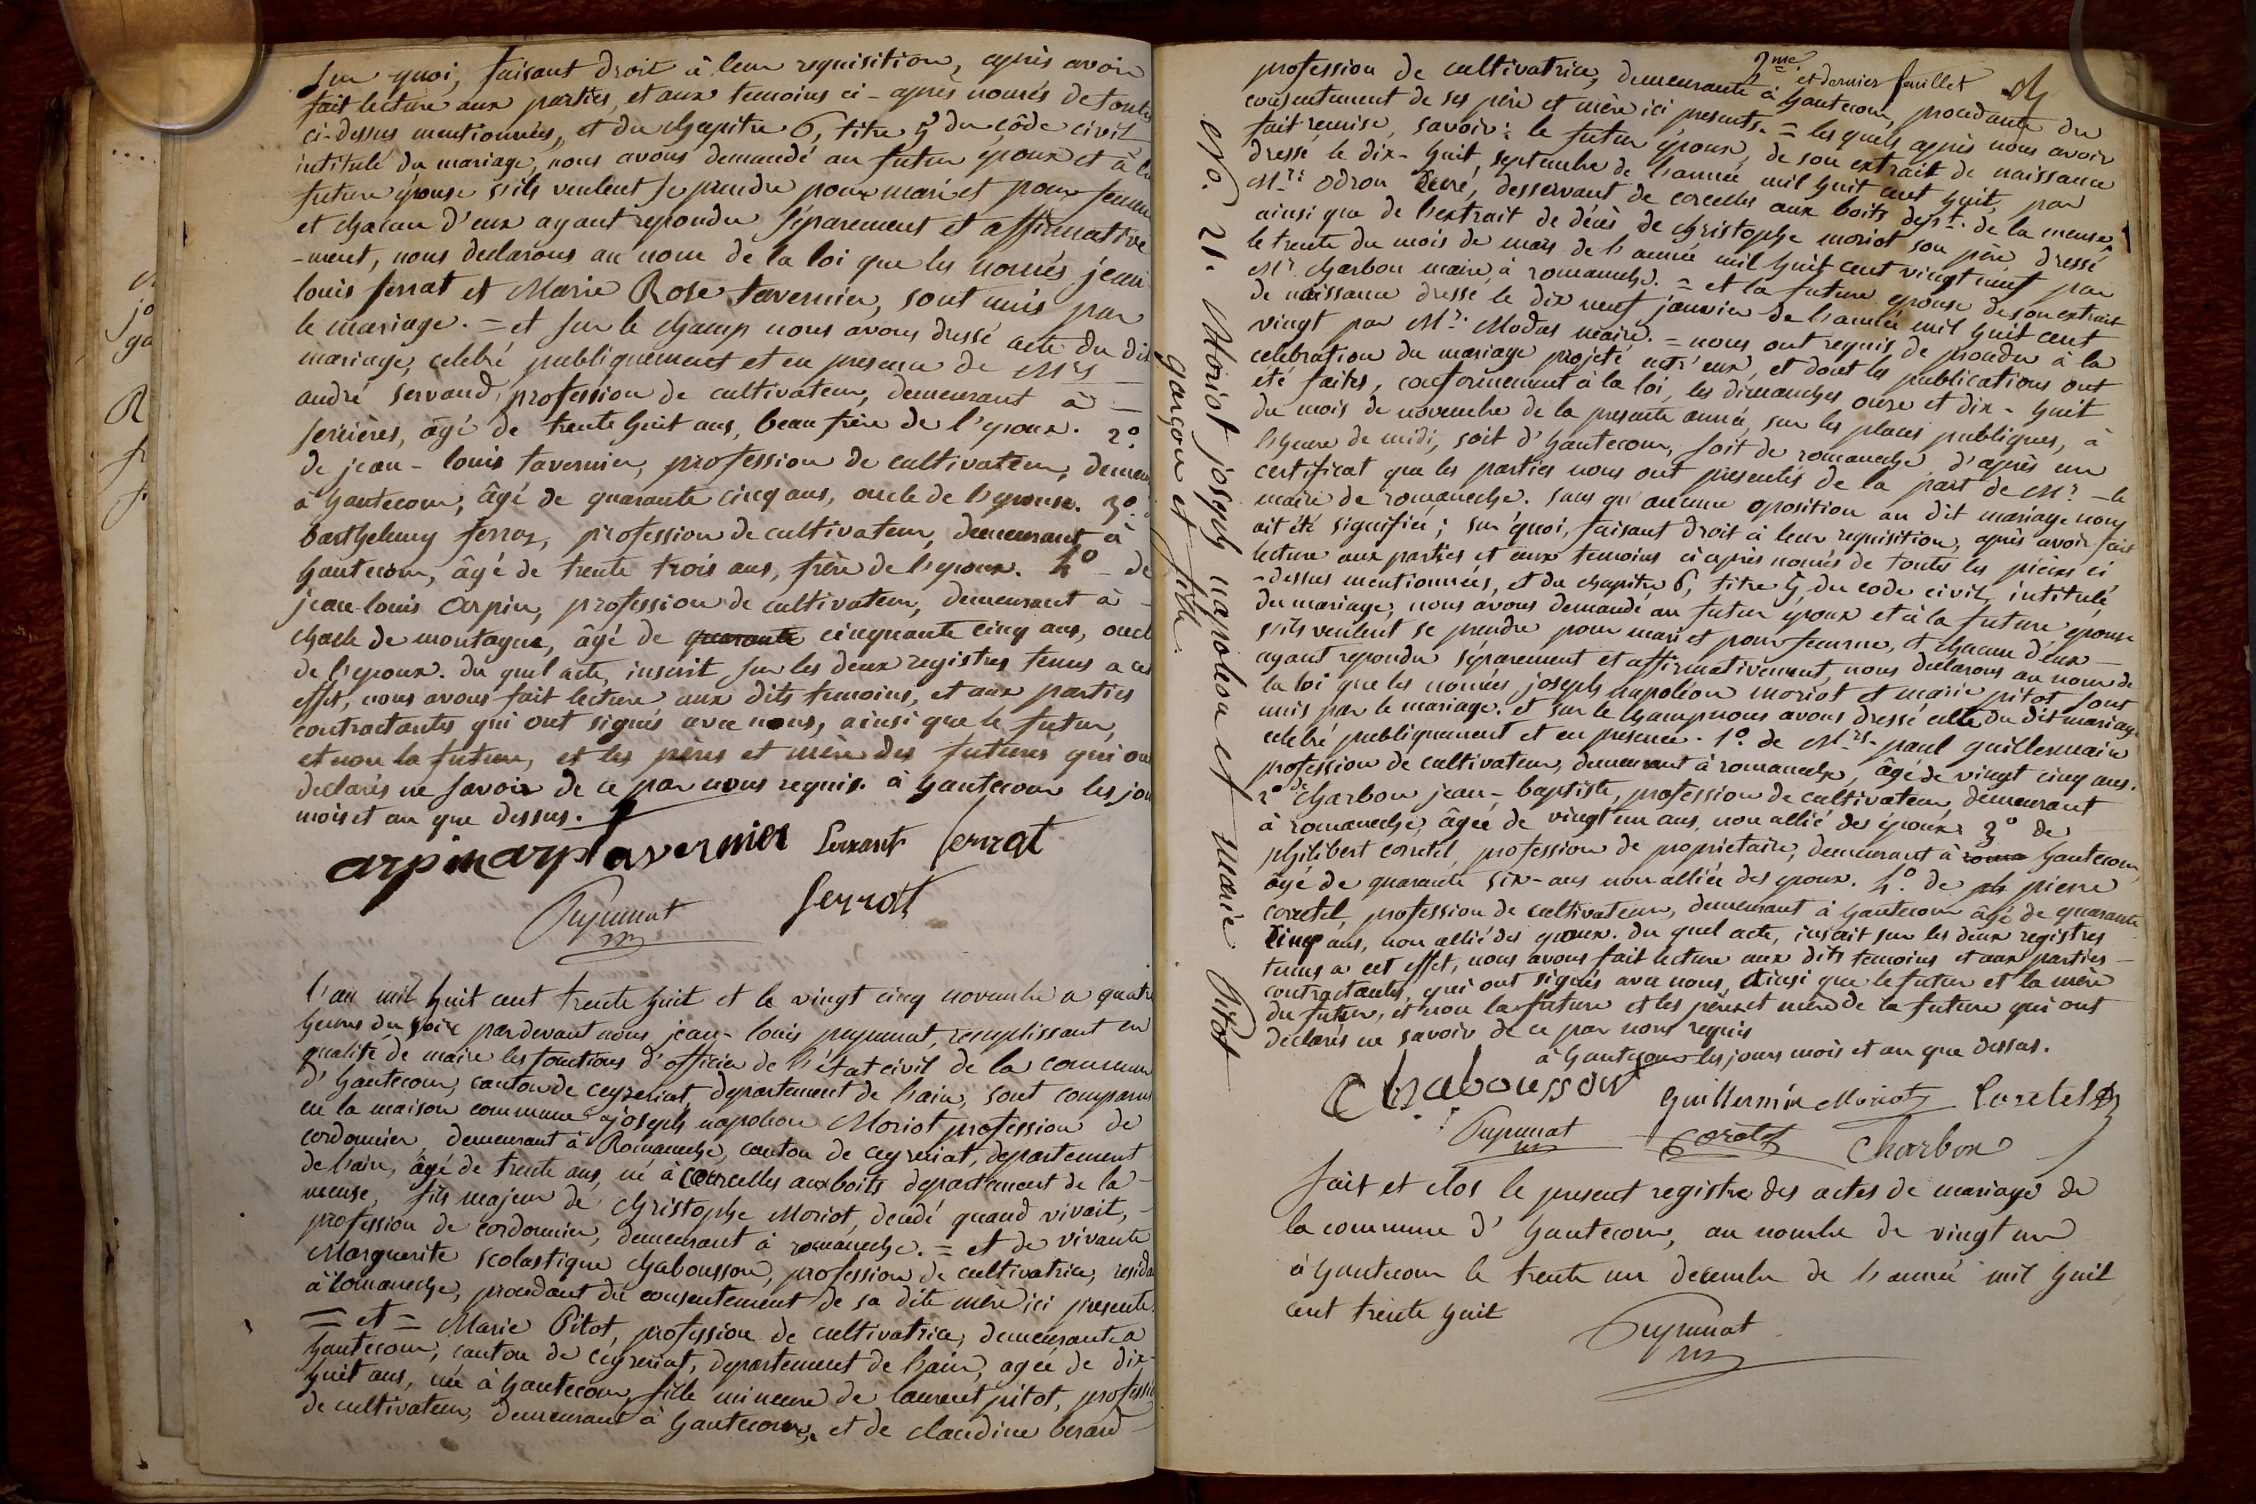 Sur quoi, faisant droit à leur requisition, après avoir
fait lecture aux parties, et aux temoins ci-après només de toutes
ci-dessus mentionnées, et du chapitre 6, titre 5 du côde civil
intitulé du mariage, nous avons demandé au futur époux et à la
future épouse s'ils veulent se prendre pour mari et pour femme
et chacun d'eux ayant repondu séparement et affirmative
-ment, nous declarons au nom de la loi que les només jean
louis ferrat et Marie Rose tavernier, sont unis par
le mariage. = et sur le champ nous avons dressé acte du dit
mariage, celebré publiquement et en presence de Mrs
andré servand, profession de cultivateur, demeurant à
serrières, âgé de trente huit ans, beau frère de l'epoux. 2o.
de jean-louis tavernier, profession de cultivateur, demeu
à hautecour, âgé de quarante cinq ans, oncle de l'epouse. 3o.
barthelemy ferraz, profession de cultivateur, demeurant à
hautecour, âgé de trente trois ans, frère de l'epoux. 4o de
jean-louis arpin, profession de cultivateur, demeurant à
de montagne, âgé de quarante cinquante cinq ans, oncle
de l'epoux. du quel acte, inscrit sur les deux registres tenus a cet
effet, nous avons fait lecture aux dits temoins, et aux parties
contractantes qui ont signés avec nous, ainsi que le futur,
et non la future, et les pères et mère des futures qui ont
declarés ne savoir de ce par nous requis. à hautecour les jour
mois et an que dessus.
arpin arp tavernier Servant ferrat
Puponat ferrat
l'an mil huit cent trente huit et le vingt cinq novembre a quatre
heures du soir pardevant nous jean-louis puponat, remplissant en
qualité de maire les fonctions d'officier de l'état civil de la commune
d'hautecour, canton de ceyzeriat, departement de l'ain, sont comparus
en la maison commune joseph napoleon Moriot profession de
cordonnier, demeurant à Romaneche, canton de ceyzeriat, departement
de l'ain, âgé de trente ans, né à corcelles aux boits departement de la
meuse, fils majeur de christophe Moriot, decedé quand vivait,
profession de cordonnier, demeurant à romaneche. = et de vivante
Marguerite scolastique chabousson, profession de cultivatrice, resida
à romaneche, procedant du consentement de sa dite mère ici presente.
= et = Marie Pitot, profession de cultivatrice, demeurante a
hautecour, canton de ceyzeriat, departement de l'ain, agée de dix-
huit ans, née à hautecour, fille mineure de laurent pitot, profession
de cultivateur, demeurant à hautecour, et de claudine berard
2me et dernier feuillet
profession de cultivatrice, demeurante à hautecour, procedante du
consentement de ses père et mère ici presents. = les quels après nous avoir
fait remise, savoir: le futur époux, de son extrait de naissance
dressé le dix-huit septembre de l'année mil huit cent huit, par
Mr. odron curé, desservant de corcelles aux boits dept. de la meuse,
ainsi que de l'extrait de décès de christophe moriot son père dressé
le trente du mois de mars de l'année mil huit cent vingt neuf par
Mr. charbon maire à romaneche. = et la future epouse de son extrait
de naissance dressé le dix neuf janvier de l'année mil huit cent
vingt par Mr. Modas maire. = nous ont requis de proceder à la
celebration du mariage projeté entr'eux, et dont les publications ont
été faites, conformement à la loi, les dimanches onze et dix-huit
du mois de novembre de la presente année, sur les places publiques, à
l'heure de midi, soit d'hautecour, soit de romaneche d'après un
certificat que les parties nous ont presentés de la part de Mr. le
maire de romaneche. sans qu'aucune oposition au dit mariage nous
ait été signifiée; sur quoi, faisant droit à leur requisition, après avoir fait
lecture aux parties et aux temoins ci après només de toutes les pièces ci
-dessus mentionnées, et du chapitre 6, titre 5, du code civil, intitulé
du mariage, nous avons demandé au futur epoux et à la future epouse
s'ils veulent se prendre pour mari et pour femme, et chacun d'eux
ayant repondu séparement et affirmativement, nous declarons au nom de
la loi que les nomées joseph napoléon moriot et marie pitot sont
unis par le mariage. et sur le champ nous avons dressé acte du dit mariage
celebré publiquement et en presence. 1o. de Mrs. paul guillermain
profession de cultivateur, demeurant à romaneche, âgé de vingt cinq ans.
2o de charbon jean-baptiste, profession de cultivateur, demeurant
à romaneche, âgée de vingt un ans, non allié des époux. 3o de
philibert corretel, profession de proprietaire, demeurant à roma hautecour
âgé de quarante six-ans non alliée des epoux. 4o. de ph pierre
corretel, profession de cultivateur, demeurant à hautecour âgé de quarante
cinq ans, non allié des epoux. du quel acte, inscrit sur les deux registres
tenus a cet effet, nous avons fait lecture aux dits temoins et aux parties
contractantes, qui ont signés avec nous, ainsi que le futur et la mère
du futur, et non la future et les père et mère de la future qui ont
declarés ne savoir de ce par nous requis
à hautecour les jours mois et an que dessus.
Chabousson Guillermin Moriot Coretel
Puponat coretel Charbon
fait et clos le present registre des actes de mariage de
la commune d'hautecour, au nombre de vingt un
à hautecour le trente un decembre de l'année mil huit
cent trente huit
Puponat
No. 21. Moriot joseph napoleon et marie Pitot
garçon et fille.